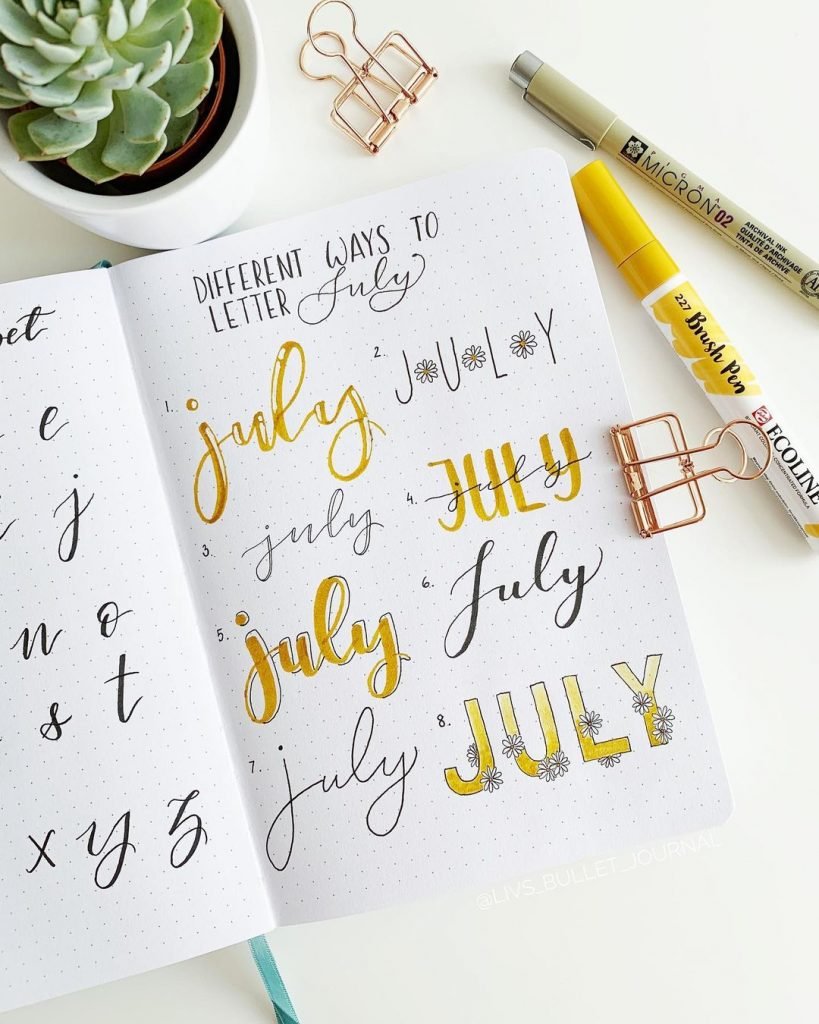 DIFFERENT WAYS TO
LETTER July
1. july
2. JULY
3. july
4. JULY
july
5. july
6. July
7. july
8. JULY
e
j
n o
s t
x y z
PIGMA
MICRON 02
ARCHIVAL INK
QUALITÉ D'ARCHIVAGE
TINTA DE ARCHIVO
227
Brush Pen
ECOLINE
@LIVS_BULLET_JOURNAL